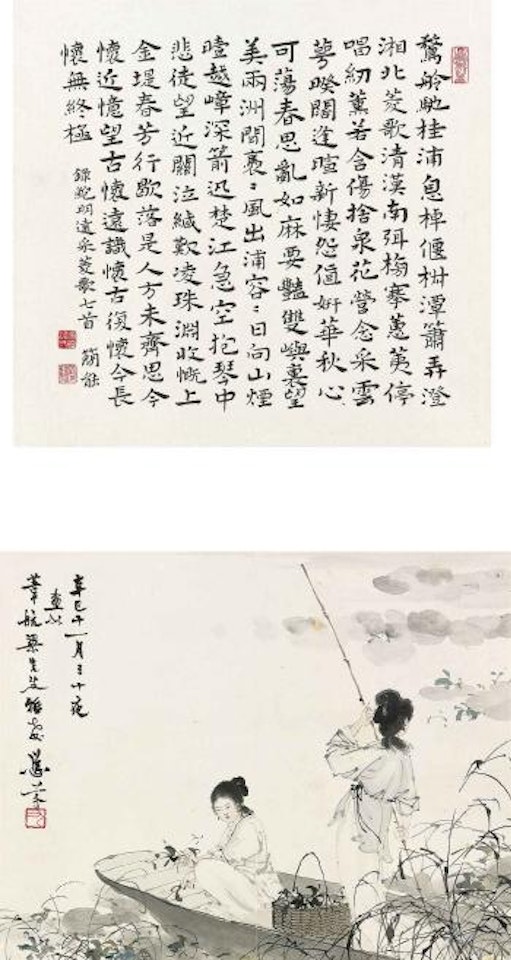 鶩舲馳桂浦息棹偃樹潭簫弄澄
湘北菱歌清漢南弭榜搴蕙荑停
唱紉薰若含傷捨泉花營念采雲
萼暌闊逢暄新悽怨值妍華秋心
可蕩春思亂如麻要豔雙嶼裏望
美兩洲間裊〻風出浦容〻日向山煙
曀越嶂深箭迅楚江急空抱琴中
悲徒望近關泣緘歎凌珠淵收慨上
金堤春芳行歇落是人方未齊思今
懷近憶望古懷遠識懷古復懷今長
懷無終極
錄鮑明遠采菱歌七首 簡能
辛巳十一月三十夜
畫以
葦航梁先生雅教